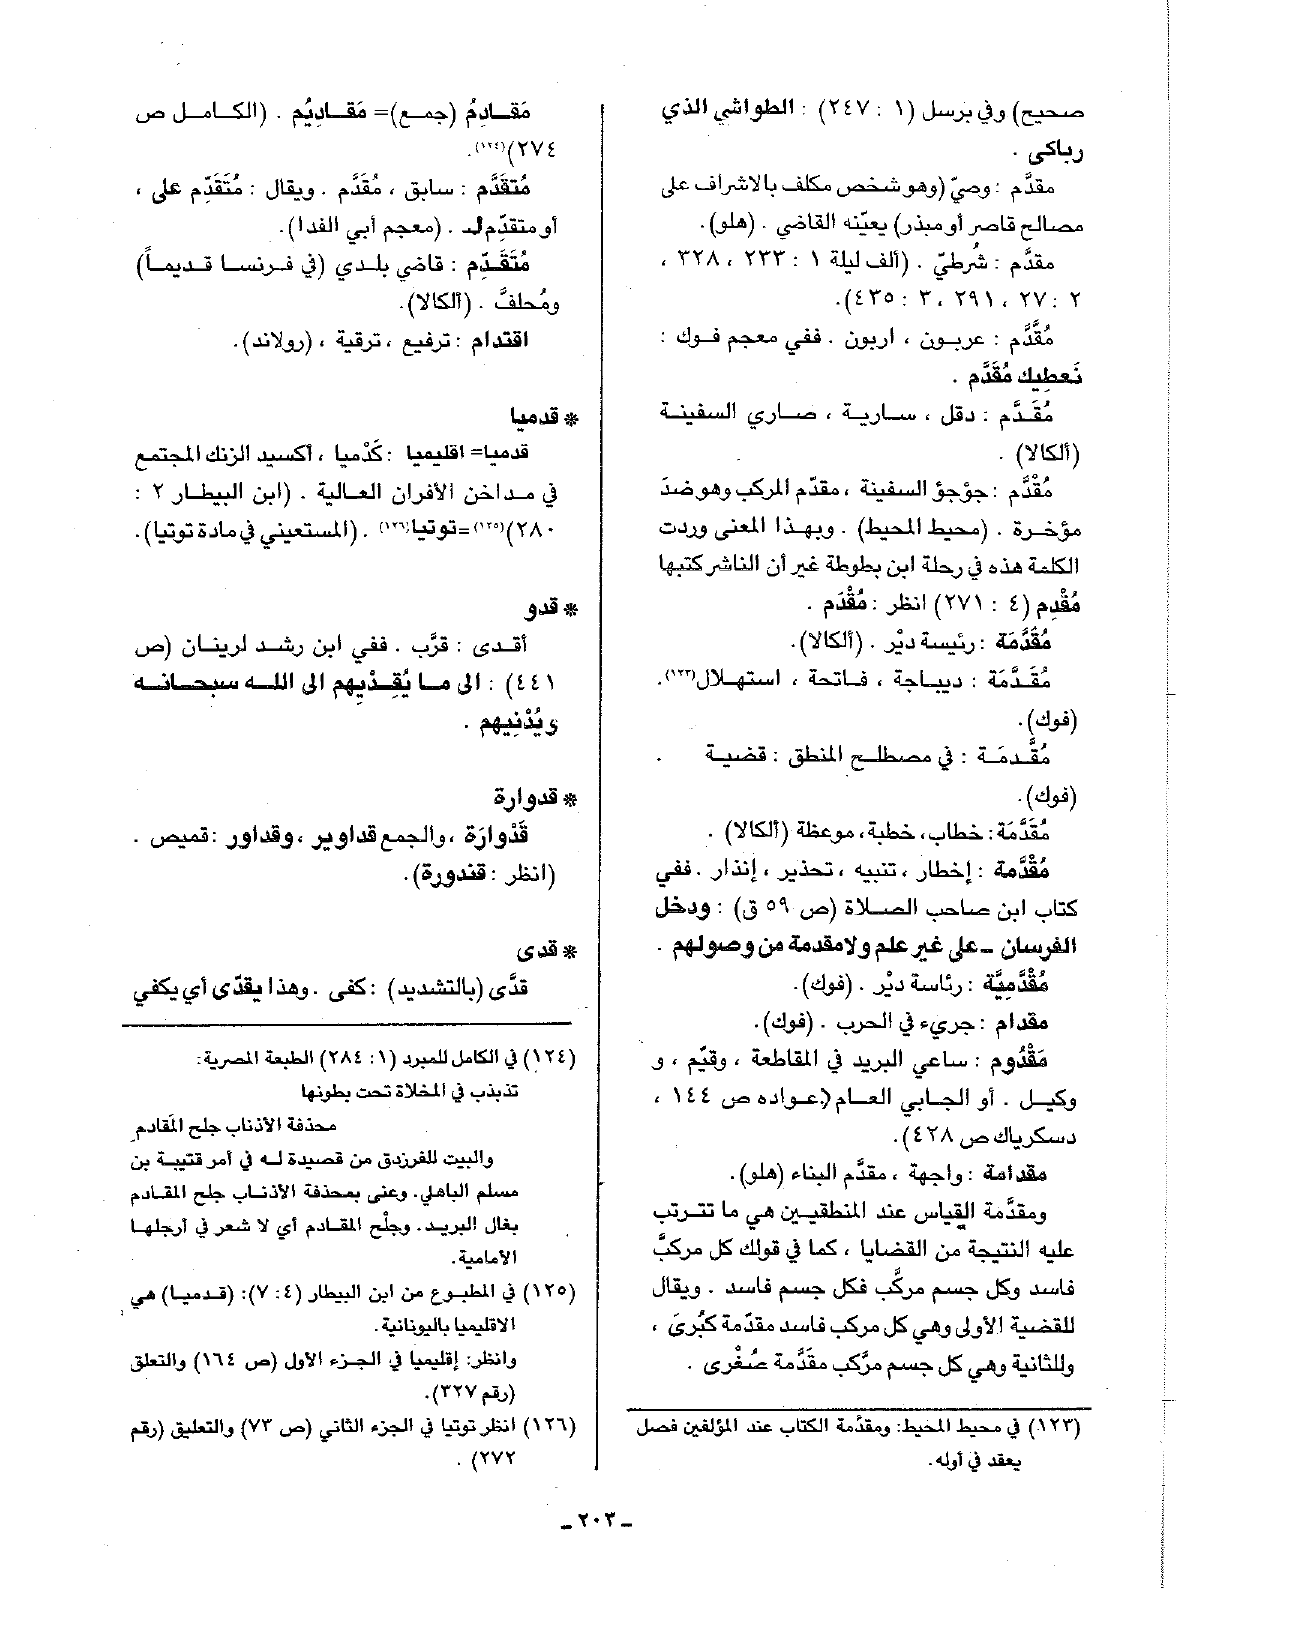 صحيح) وفي برسل (١ : ٢٤٧) : الطواشي الذي
رباكى .
مقدَّم : وصيّ (وهو شخص مكلف بالاشراف على
مصالح قاصر أو مبذر) يعيّنه القاضي . (هلو).
مقدَّم : شُرطيّ . (ألف ليلة ١ : ٢٣٣ ، ٣٢٨ ،
٢ : ٢٧ ، ٢٩١ ، ٣ : ٤٣٥).
مُقَدَّم : عربون ، اربون . ففي معجم فوك :
نَعطيك مُقَدَّم .
مُقَدَّم : دقل ، سارية ، صاري السفينة
(ألكالا) .
مُقْدَّم : جؤجؤ السفينة ، مقدّم المركب وهو ضدّ
مؤخرة . (محيط المحيط) . وبهذا المعنى وردت
الكلمة هذه في رحلة ابن بطوطة غير أن الناشر كتبها
مُقْدِم (٤ : ٢٧١) انظر : مُقْدَم .
مُقْدَّمَة : رئيسة ديْر . (ألكالا).
مُقَدَّمَة : ديباجة ، فاتحة ، استهلال(١٢٣).
(فوك).
مُقَدَّمَة : في مصطلح المنطق : قضية .
(فوك).
مُقَدَّمَة : خطاب ، خطبة ، موعظة (ألكالا) .
مُقْدَّمة : إخطار ، تنبيه ، تحذير ، إنذار . ففي
كتاب ابن صاحب الصلاة (ص ٥٩ ق) : ودخل
الفرسان ــ على غير علم ولا مقدمة من وصولهم .
مُقْدَّمِيَّة : رئاسة ديْر . (فوك).
مقدام : جريء في الحرب . (فوك).
مَقْدُوم : ساعي البريد في المقاطعة ، وقيّم ، و
وكيل . أو الجابي العام (عواده ص ١٤٤ ،
دسكرياك ص ٤٢٨).
مقدامة : واجهة ، مقدَّم البناء (هلو).
ومقدَّمة القياس عند المنطقيين هي ما تترتب
عليه النتيجة من القضايا ، كما في قولك كل مركبَّ
فاسد وكل جسم مركَّب فكل جسم فاسد . ويقال
للقضية الأولى وهي كل مركب فاسد مقدّمة كُبْرَى ،
وللثانية وهي كل جسم مركَّب مقدَّمة صُغْرى .
(١٢٣) في محيط المحيط: ومقدَّمة الكتاب عند المؤلفين فصل
يعقد في أوله.
مَقَادِمُ (جمع)= مَقَادِيُم . (الكامل ص
٢٧٤)(١٢٤).
مُتَقَدَّم : سابق ، مُقَدَّم . ويقال : مُتَقَدّم على ،
أو متقدِّم لـ . (معجم أبي الفدا).
مُتَقَدِّم : قاضي بلدي (في فرنسا قديماً)
ومُحلفَّ . (ألكالا).
اقتدام : ترفيع ، ترقية ، (رولاند).
* قدميا
قدميا= اقليميا : كَدْميا ، أكسيد الزنك المجتمع
في مداخن الأفران العالية . (ابن البيطار ٢ :
٢٨٠)(١٢٥)=توتيا(١٢٦) . (المستعيني في مادة توتيا).
* قدو
أقدى : قرَّب . ففي ابن رشد لرينان (ص
٤٤١) : الى ما يُقدِيهم الى الله سبحانه
ويُدْنِيهم .
* قدوارة
قَدْوارَة ، والجمع قداوير ، وقداور : قميص .
(انظر : قندورة).
* قدى
قدَّى (بالتشديد) : كفى . وهذا يقدّى أي يكفي
(١٢٤) في الكامل للمبرد (١: ٢٨٤) الطبعة المصرية:
تذبذب في المخلاة تحت بطونها
محذفة الأذناب جلح المَقادِم
والبيت للفرزدق من قصيدة له في أمر قتيبة بن
مسلم الباهلي. وعنى بمحذفة الأذناب جلح المقادم
بغال البريد. وجلْح المقادم أي لا شعر في أرجلها
الأمامية.
(١٢٥) في المطبوع من ابن البيطار (٤: ٧): (قدميا) هي
الاقليميا باليونانية.
وانظر: إقليميا في الجزء الأول (ص ١٦٤) والتعلق
(رقم ٣٢٧).
(١٢٦) انظر توتيا في الجزء الثاني (ص ٧٣) والتعليق (رقم
٢٧٢) .
ــ ٢٠٣ ــ